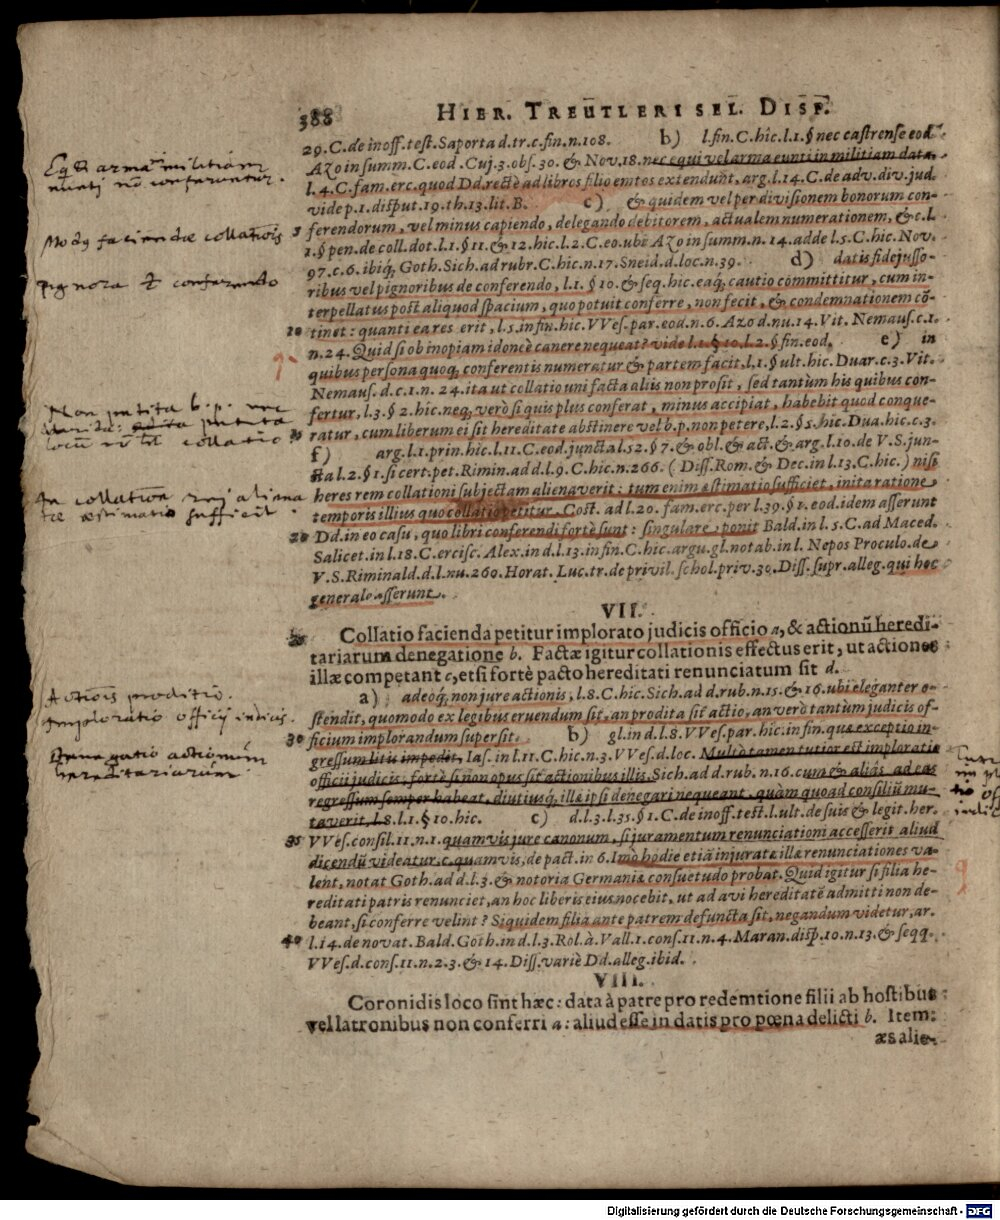 388 HIER. TREUTLERI SEL. DISP.
29. C. de inoff. test. Saporta d. tr. c. fin. n. 108. b) l. fin. C. hîc. l. 1. § nec castrense eod.
Azo in summ. C. eod. Cuj. 3. obs. 30. & Nov. 18. nec equi vel arma eunti in militiam data.
l. 4. C. fam. erc. quod Dd. rectè ad libros filio emtos extendunt, arg. l. 14. C. de adv. div. jud.
vide p. 1. disput. 19. th. 13. lit. B. c) & quidem vel per divisionem bonorum con-
5 ferendorum, vel minus capiendo, delegando debitorem, actualem numerationem, &c. l.
1. § pen. de coll. dot. l. 1. § 11. & 12. hic. l. 2. C. eo. ubi Azo in summ. n. 14. adde l. 5. C. hic. Nov.
97. c. 6. ibiq́; Goth. Sich. ad rubr. C. hic. n. 17. Sneid. d. loc. n. 39. d) datis fidejusso-
ribus vel pignoribus de conferendo, l. 1. § 10. & seq. hic. eaq́; cautio committitur, cum in-
terpellatus post aliquod spacium, quo potuit conferre, non fecit, & condemnationem cō-
10 tinet: quanti ea res erit, l. 5. in fin. hic. VVes. par. eod. n. 6. Azo d. nu. 14. Vit. Nemaus. c. 1.
n. 24. Quid si ob inopiam idoneè canere nequeat? vide l. 1. § 10. l. 2. § fin. eod. e) in
quibus persona quoq́; conferentis numeratur & partem facit, l. 1. § ult. hic. Duar. c. 3. Vit.
Nemaus. d. c. 1. n. 24. ita ut collatio uni facta aliis non prosit, sed tantùm his quibus con-
fertur, l. 3. § 2. hic. neq́; verò si quis plus conferat, minus accipiat, habebit quod conque-
ratur, cum liberum ei sit hereditate abstinere vel b. p. non petere, l. 2. § 5. hic. Dua. hic. c. 3.
f) arg. l. 1. prin. hic. l. 11. C. eod. juncta l. 52. § 7. & obl. & act. & arg. l. 10. de V. S. jun-
cta l. 2. § 1. si cert. pet. Rimin. ad d. l. 9. C. hic. n. 266. (Diss. Rom. & Dec. in l. 13. C. hic.) nisi
heres rem collationi subjectam alienaverit: tum enim æstimatio sufficiet, inita ratione
temporis illius quo collatio petitur. Cost. ad l. 20. fam. erc. per l. 39. § 1. eod. idem asserunt
20 Dd. in eo casu, quo libri conferendi fortè sunt: singulare ponit Bald. in l. 5. C. ad Maced.
Salicet. in l. 18. C. ercisc. Alex. in d. l. 13. in fin. C. hic. argu. gl. not ab. in l. Nepos Proculo. de
V. S. Riminald. d. l. nu. 260. Horat. Luc. tr. de privil. schol. priv. 30. Diss. supr. alleg. qui hoc
generalo asserunt.
VII.
Collatio facienda petitur implorato judicis officio a, & actionū heredi-
tariarum denegatione b. Factæ igitur collationis effectus erit, ut actiones
illæ competant c, etsi fortè pacto hereditati renunciatum sit d.
a) adeoq́; non jure actionis, l. 8. C. hic. Sich. ad d. rub. n. 15. & 16. ubi eleganter o-
stendit, quomodo ex legibus eruendum sit, an prodita sit actio, an verò tantùm judicis of-
30 ficium implorandum supersit. b) gl. in d. l. 8. VVes. par. hic. in fin. quæ exceptio in-
gressum litis impedit, Ias. in l. 11. C. hic. n. 3. VVes. d. loc. Multò tamen tutior est imploratio
officii judicis: fortè si non opus sit actionibus illis. Sich. ad d. rub. n. 16. cum & aliàs ad eas
regressum semper habeat, diutiusq́; illæ ipsi denegari nequeant, quàm quoad consiliū mu-
taverit, l. 8. l. 1. § 10. hic. c) d. l. 3. l. 35. § 1. C. de inoff. test. l. ult. de suis & legit. her.
35 VVes. consil. 11. n. 1. quamvis jure canonum, si juramentum renunciationi accesserit aliud
dicendū videatur. c. quamvis, de pact. in 6. Imò hodie etiā injuratæ illæ renunciationes va-
lent, notat Goth. ad d. l. 3. & notoria Germaniæ consuetudo probat. Quid igitur si filia he-
reditati patris renunciet, an hoc liberis eius nocebit, ut ad avi hereditatē admitti non de-
beant, si conferre velint? Siquidem filia ante patrem defuncta sit, negandum videtur, ar.
40 l. 14. de novat. Bald. Goth. in d. l. 3. Rol. à. Vall. 1. cons. 11. n. 4. Maran. disp. 10. n. 13. & seqq.
VVes. d. cons. 11. n. 2. 3. & 14. Diss. variè Dd. alleg. ibid.
VIII.
Coronidis loco sint hæc: data à patre pro redemtione filii ab hostibus
vel latronibus non conferri a: aliud esse in datis pro pœna delicti b. Item:
æs alie-
Modus faciendæ collationis
An collationem rei aliena
tæ æstimatio sufficit.
Actionis proditio.
Imploratio officij iudicis.
Denegatio actionum
hereditariarum
Digitalisierung gefördert durch die Deutsche Forschungsgemeinschaft - DFG